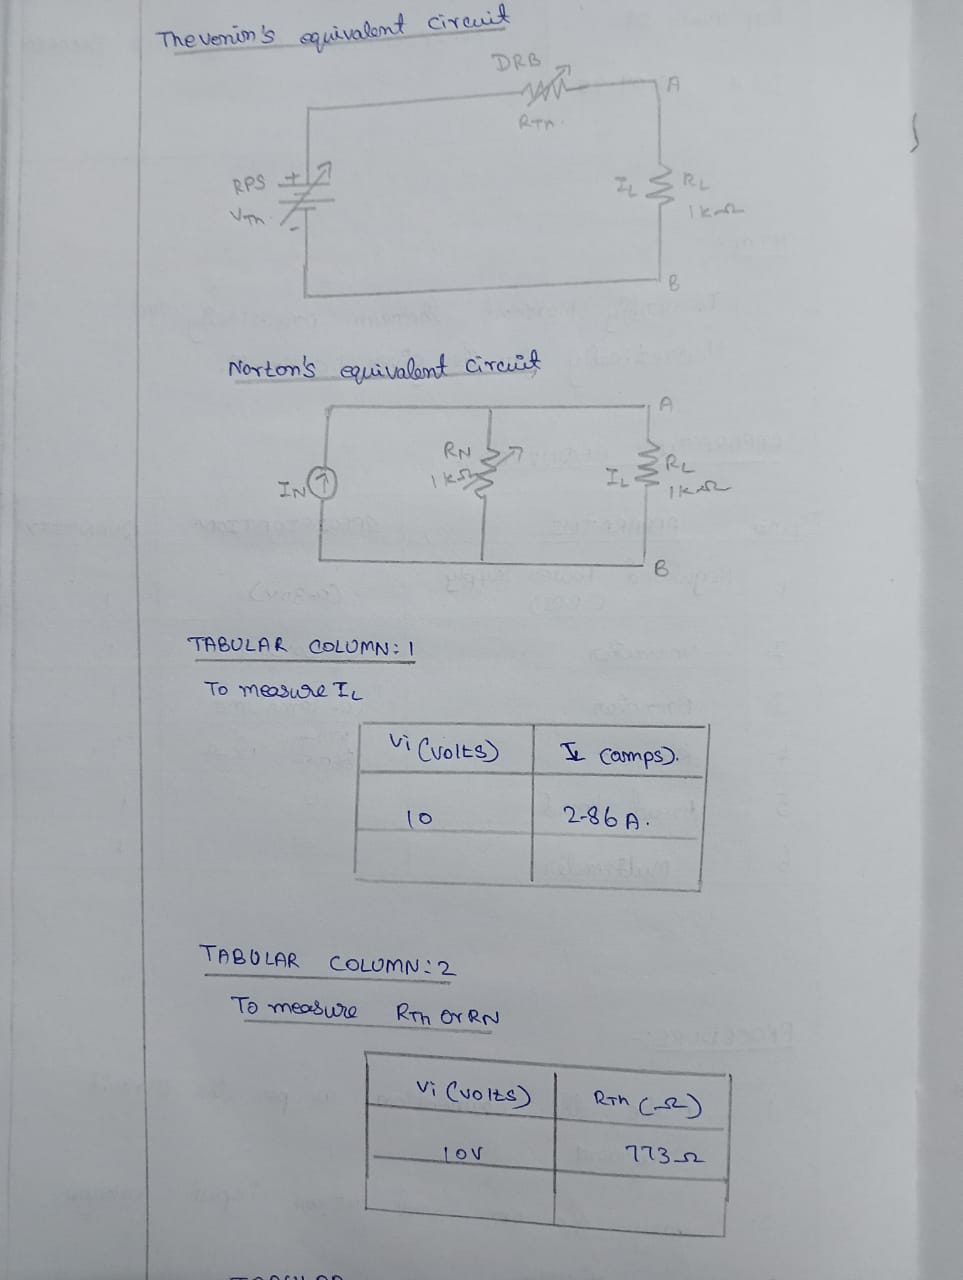 Thevenin's equivalent circuit
DRB
A
RTh.
RPS +
VTh
-
IL RL
1kΩ
B
Norton's equivalent circuit
A
RN
1kΩ
IN
IL RL
1kΩ
B
TABULAR COLUMN: 1
To measure IL
Vi (volts) IL (amps).
10 2.86 A.
TABULAR COLUMN: 2
To measure RTh or RN
Vi (volts) RTh (Ω)
10V 773Ω